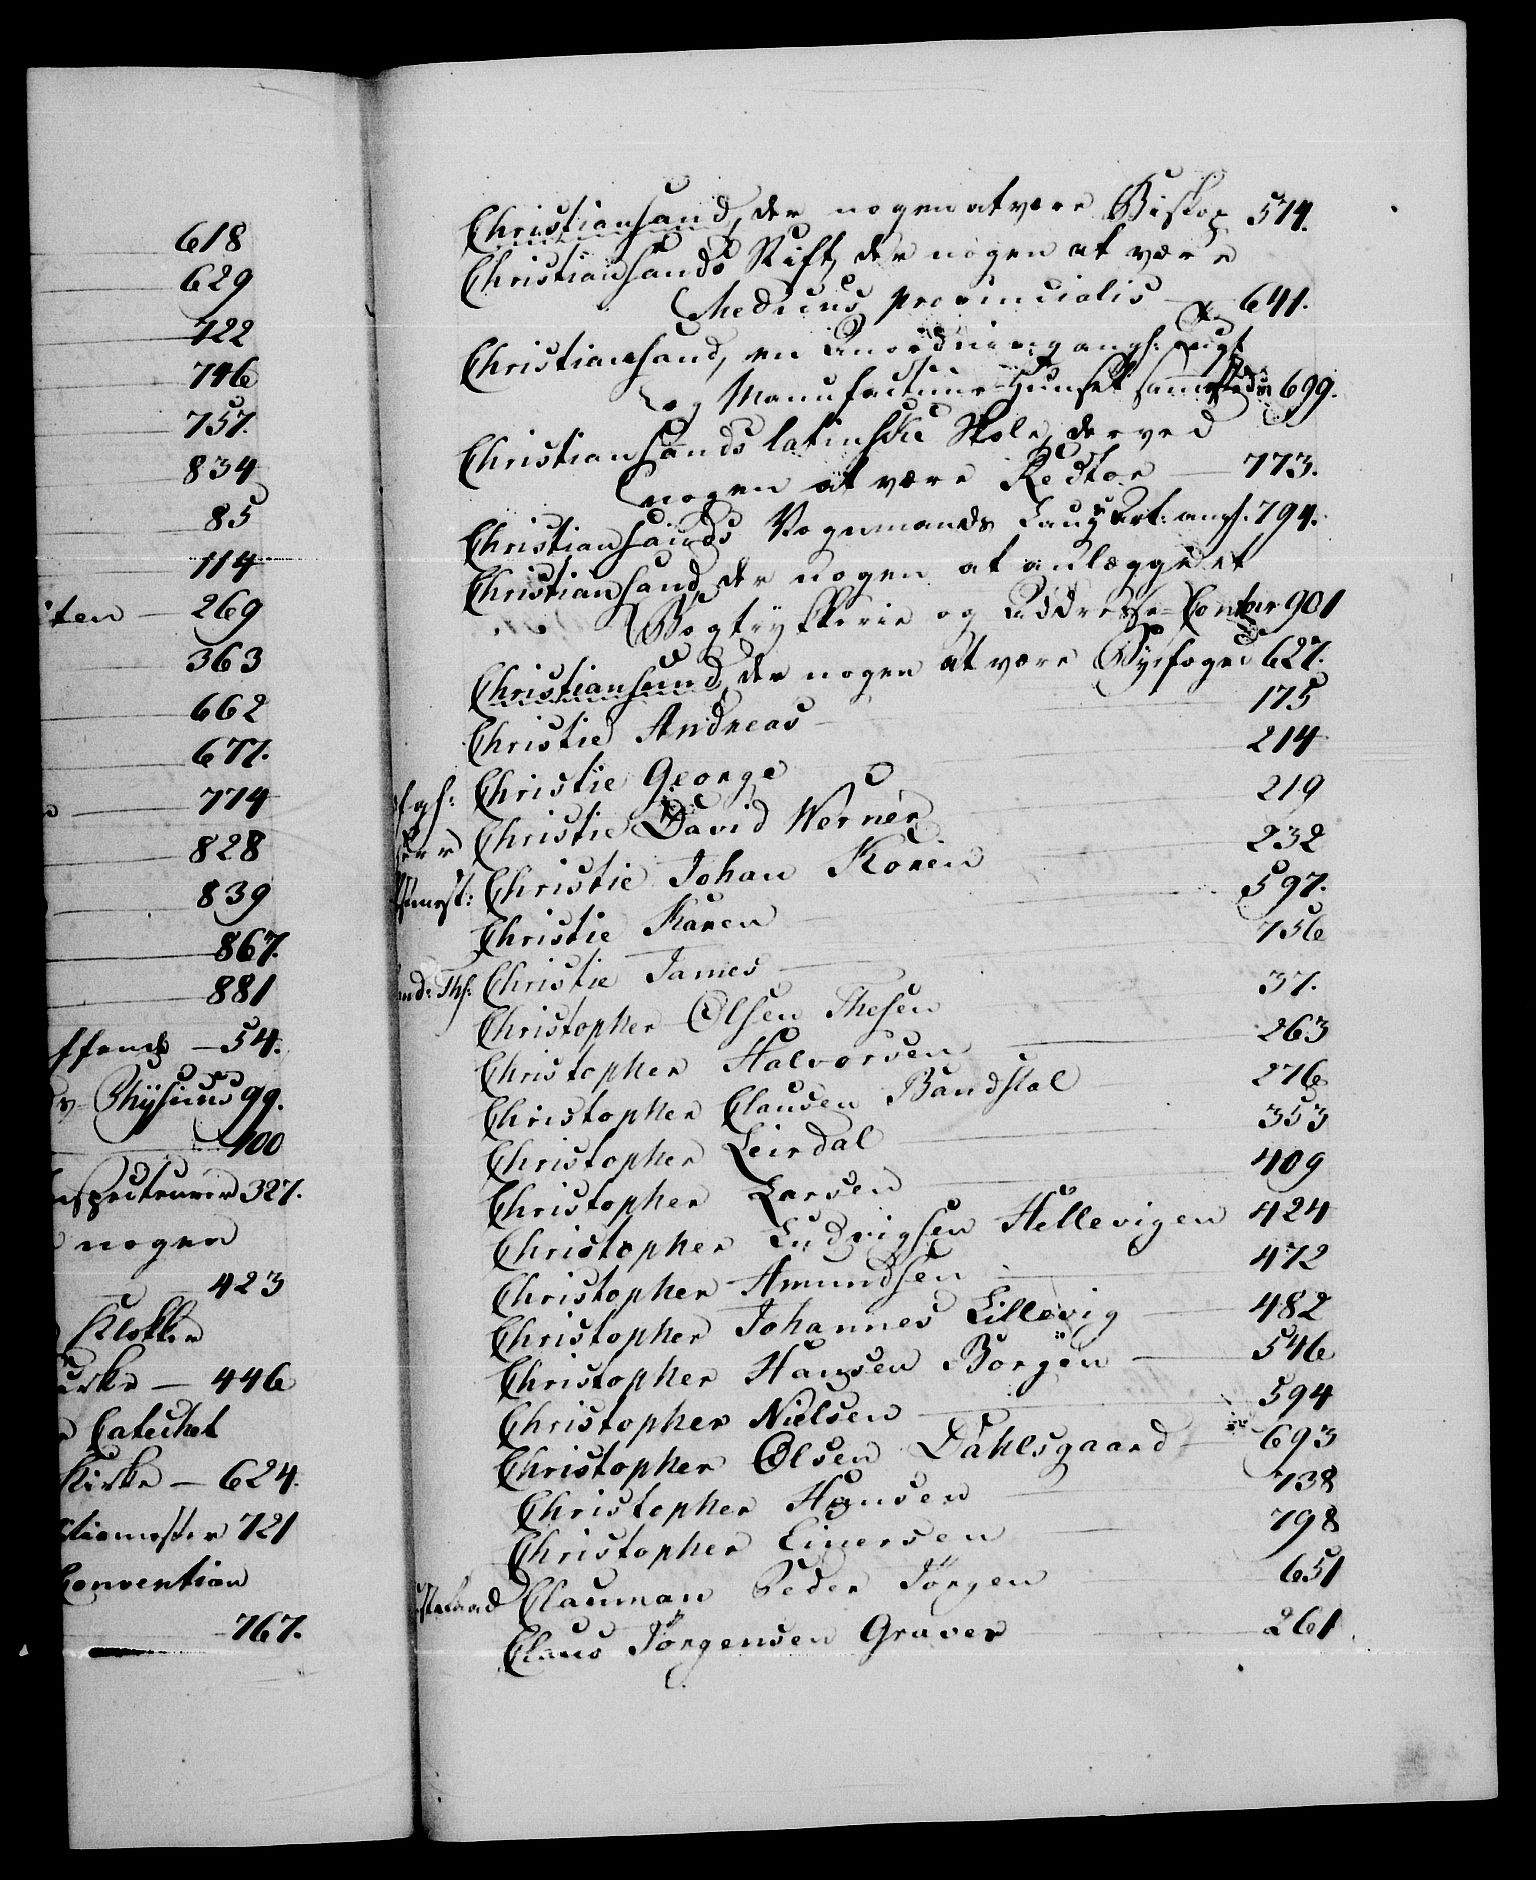 618
629
722
746
757.
834
85
114
269
363
662
677.
774
828
839
867.
881
54.
Physicus 99.
100
327.
nogen
423
Klokker
446
Catechet
Kirke — 624.
721
Convention
767.
Christiansand, der nogen at være Biskop 574.
Christiansands Stift, der nogen at være
Medicus provincialis — 641.
Christiansand, en Anordning angh: Tugt
og Manufactuur-Huuset sammesteds 699.
Christiansands latinske Skole, der ved
nogen at være Rector — 773.
Christiansands Vognmands Laug Art: angh. 794.
Christiansand, der nogen at anlægge et
Bogtrykkerie og Addresse-Contoir 901
Christiansund, der nogen at være Byefoged 627.
Christie Andreas — 175
Christie George 214
Christie David Werner 219
Christie Johan Koren 232
Christie Karen 597.
Christie James 756
Christopher Olsen Thesen 37.
Christopher Halvorsen 263
Christopher Clausen Bandstøl 276
Christopher Leirdal 353
Christopher Larsen 409
Christopher Ludvigsen Hellevigen 424
Christopher Amundsen 472
Christopher Johannes Lillevig 482
Christopher Hansen Borgen 546
Christopher Nielsen 594
Christopher Olsen Dahlsgaard 693
Christopher Hansen 738
Christopher Einersen 798
Clauman Peder Jörgen 651
Claus Jörgensen Graver 261